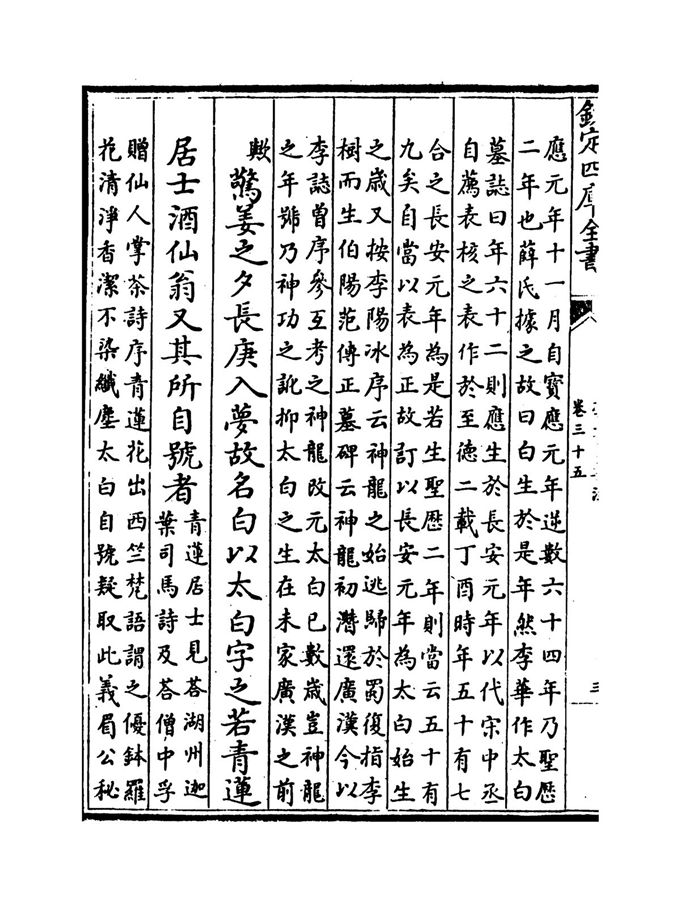 欽定四庫全書
卷三十五
應元年十一月自寶應元年逆數六十四年乃聖厯
二年也薛氏據之故曰白生於是年然李華作太白
墓誌曰年六十二則應生於長安元年以代宋中丞
自薦表核之表作於至德二載丁酉時年五十有七
合之長安元年為是若生聖厯二年則當云五十有
九矣自當以表為正故訂以長安元年為太白始生
之歲又按李陽冰序云神龍之始逃歸於蜀復指李
樹而生伯陽范傳正墓碑云神龍初潛還廣漢今以
李誌曾序參互考之神龍改元太白已數歲豈神龍
之年號乃神功之訛抑太白之生在未家廣漢之前
歟
驚姜之夕長庚入夢故名白以太白字之若青蓮
居士酒仙翁又其所自號者
青蓮居士見荅湖州迦
葉司馬詩及荅僧中孚
贈仙人掌茶詩序青蓮花出西竺梵語謂之優鉢羅
花清淨香潔不染纖塵太白自號疑取此義眉公秘